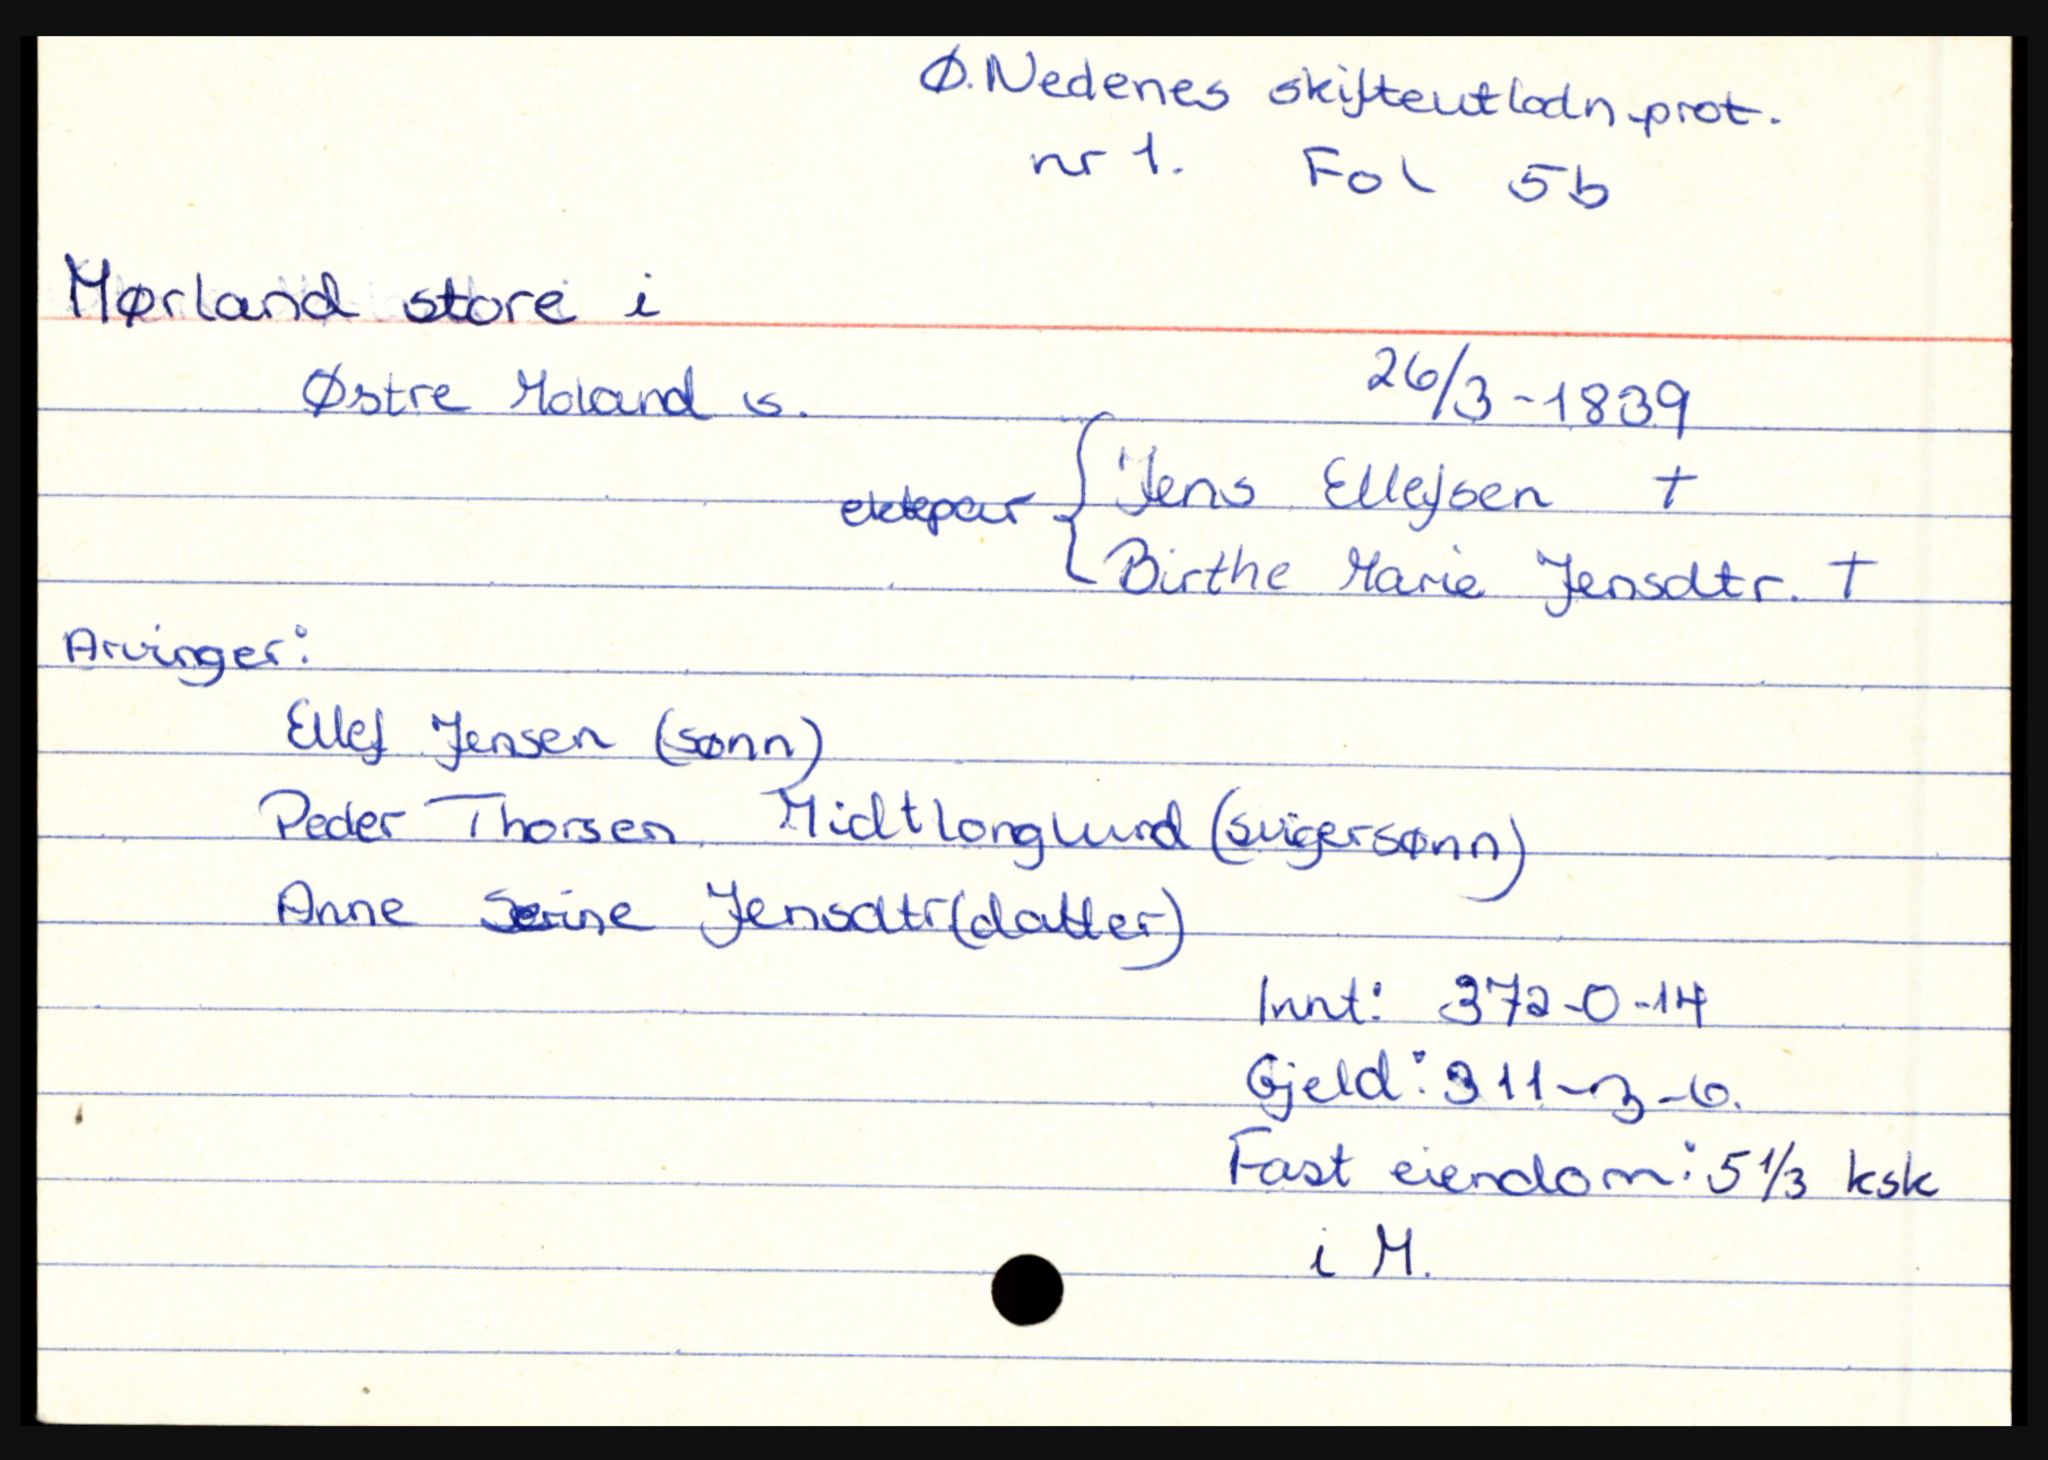 Ø. Nedenes skifteutlodn.prot.
nr 1. Fol 5b
Mørland store i
Østre Moland s. 26/3-1839
ektepar { Jens Ellefsen †
Birthe Marie Jensdtr. †
Arvinger:
Ellef Jensen (sønn)
Peder Thorsen Midtlonglund (svigersønn)
Anne Serine Jensdtr (datter)
Innt: 372-0-14
Gjeld: 311-3-6.
Fast eiendom: 5 1/3 ksk
i M.